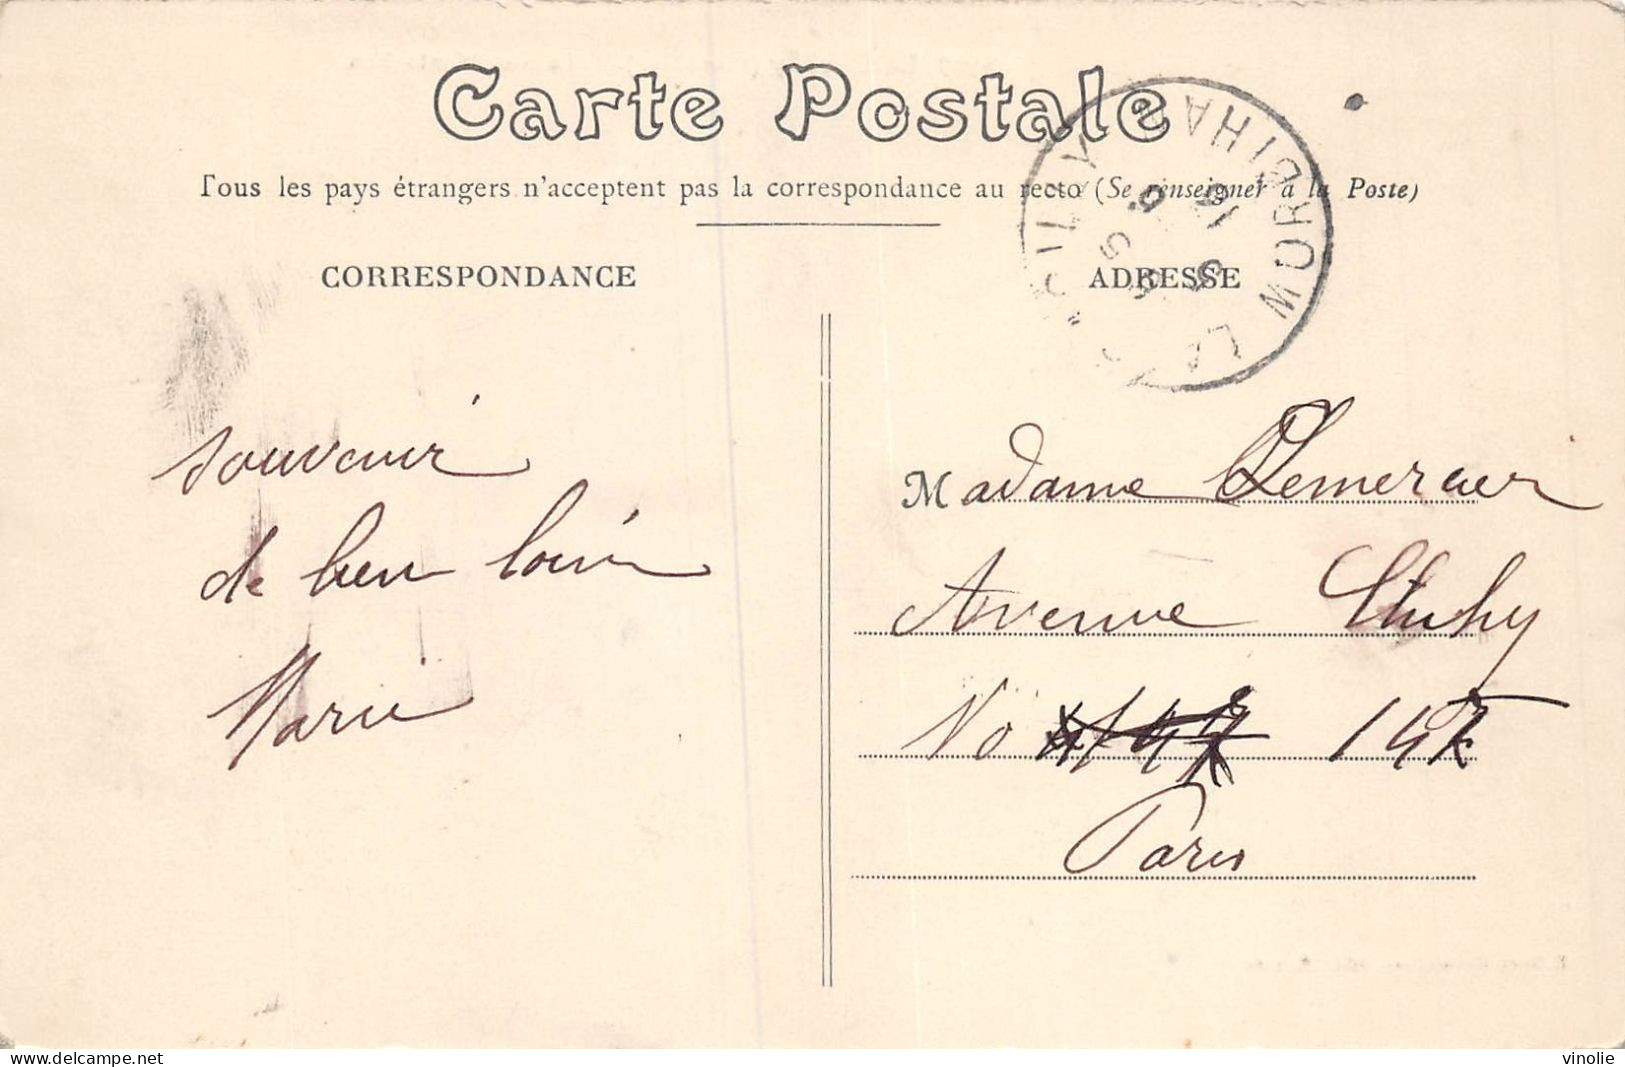 Carte Postale
Tous les pays étrangers n'acceptent pas la correspondance au recto (Se renseigner à la Poste)
CORRESPONDANCE
ADRESSE
souvenir
de bien loin
Marie
Madame Lemercier
Avenue Cluhy
No 147
Paris
vinolie